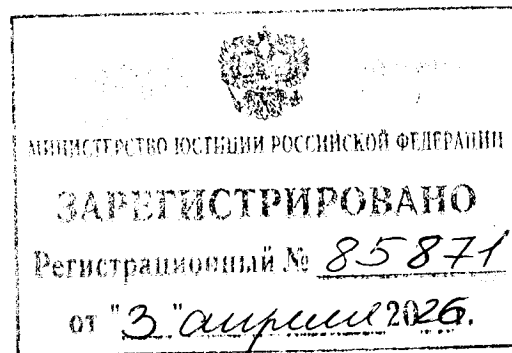 МИНИСТЕРСТВО ЮСТИЦИИ РОССИЙСКОЙ ФЕДЕРАЦИИ
ЗАРЕГИСТРИРОВАНО
Регистрационный № 85871
от "3" апреля 2026.